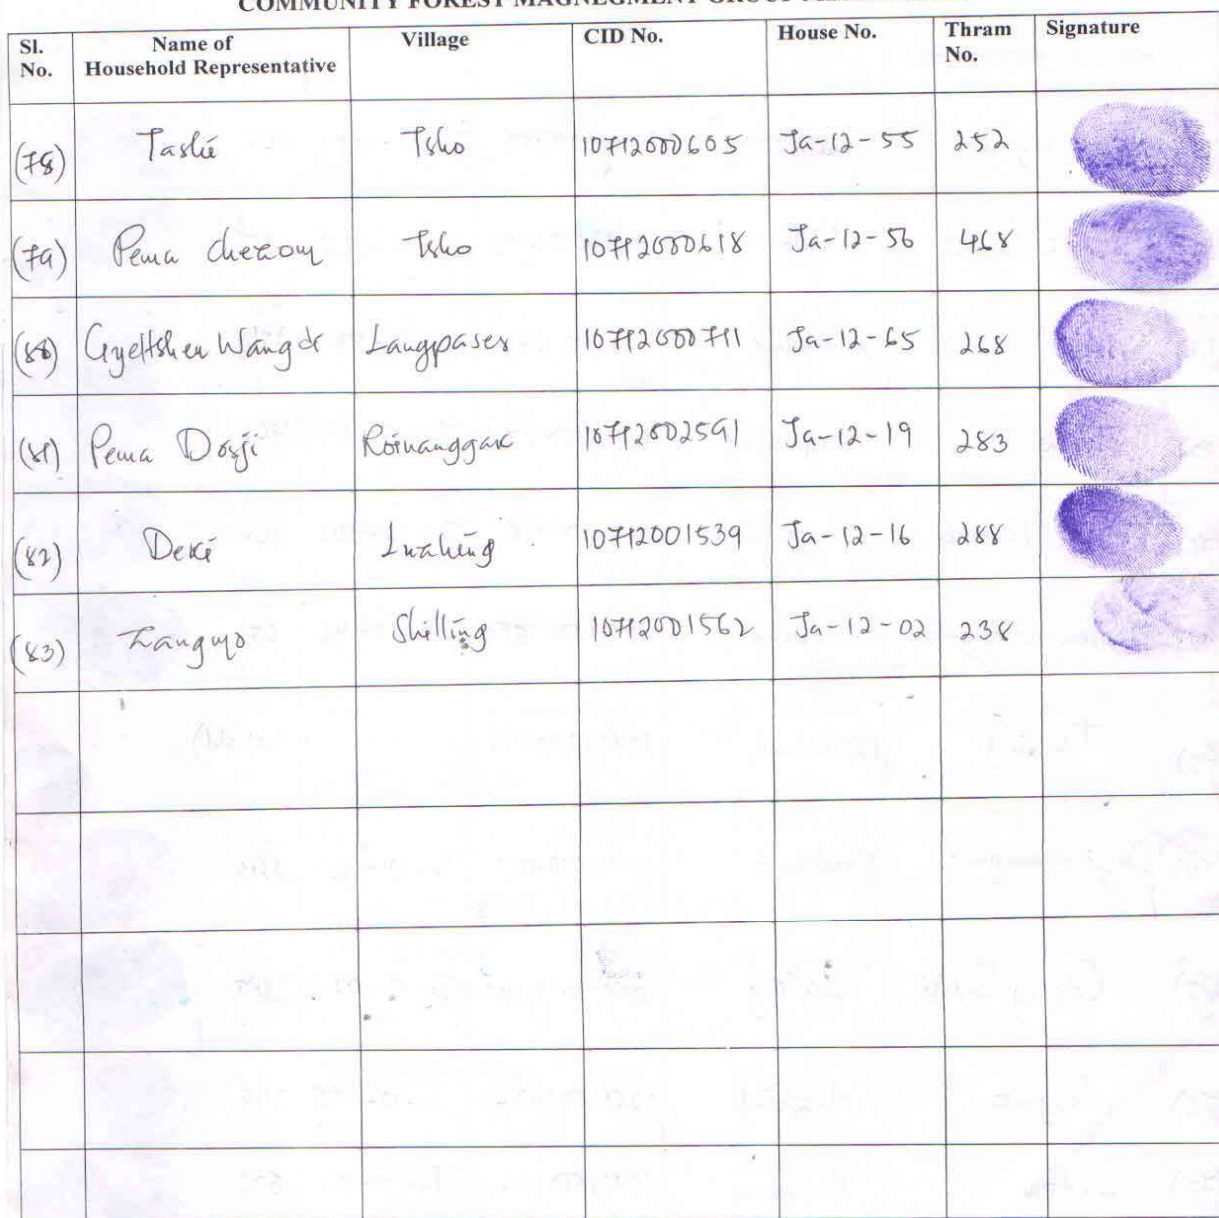 COMMUNITY FOREST MAGNEGMENT GROUP
Sl. No. Name of Household Representative Village CID No. House No. Thram No. Signature
(78) Tashi Tsho 10712000605 Ja-12-55 252
(79) Pema Tsho 10712000618 Ja-12-56 468
(80) Gyeltshen Wangdi Langpaser 10712000711 Ja-12-65 268
(81) Pema Dorji 10712002591 Ja-12-19 283
(82) Deki 10712001539 Ja-12-16 288
(83) Zangmo Shilling 10712001562 Ja-12-02 238